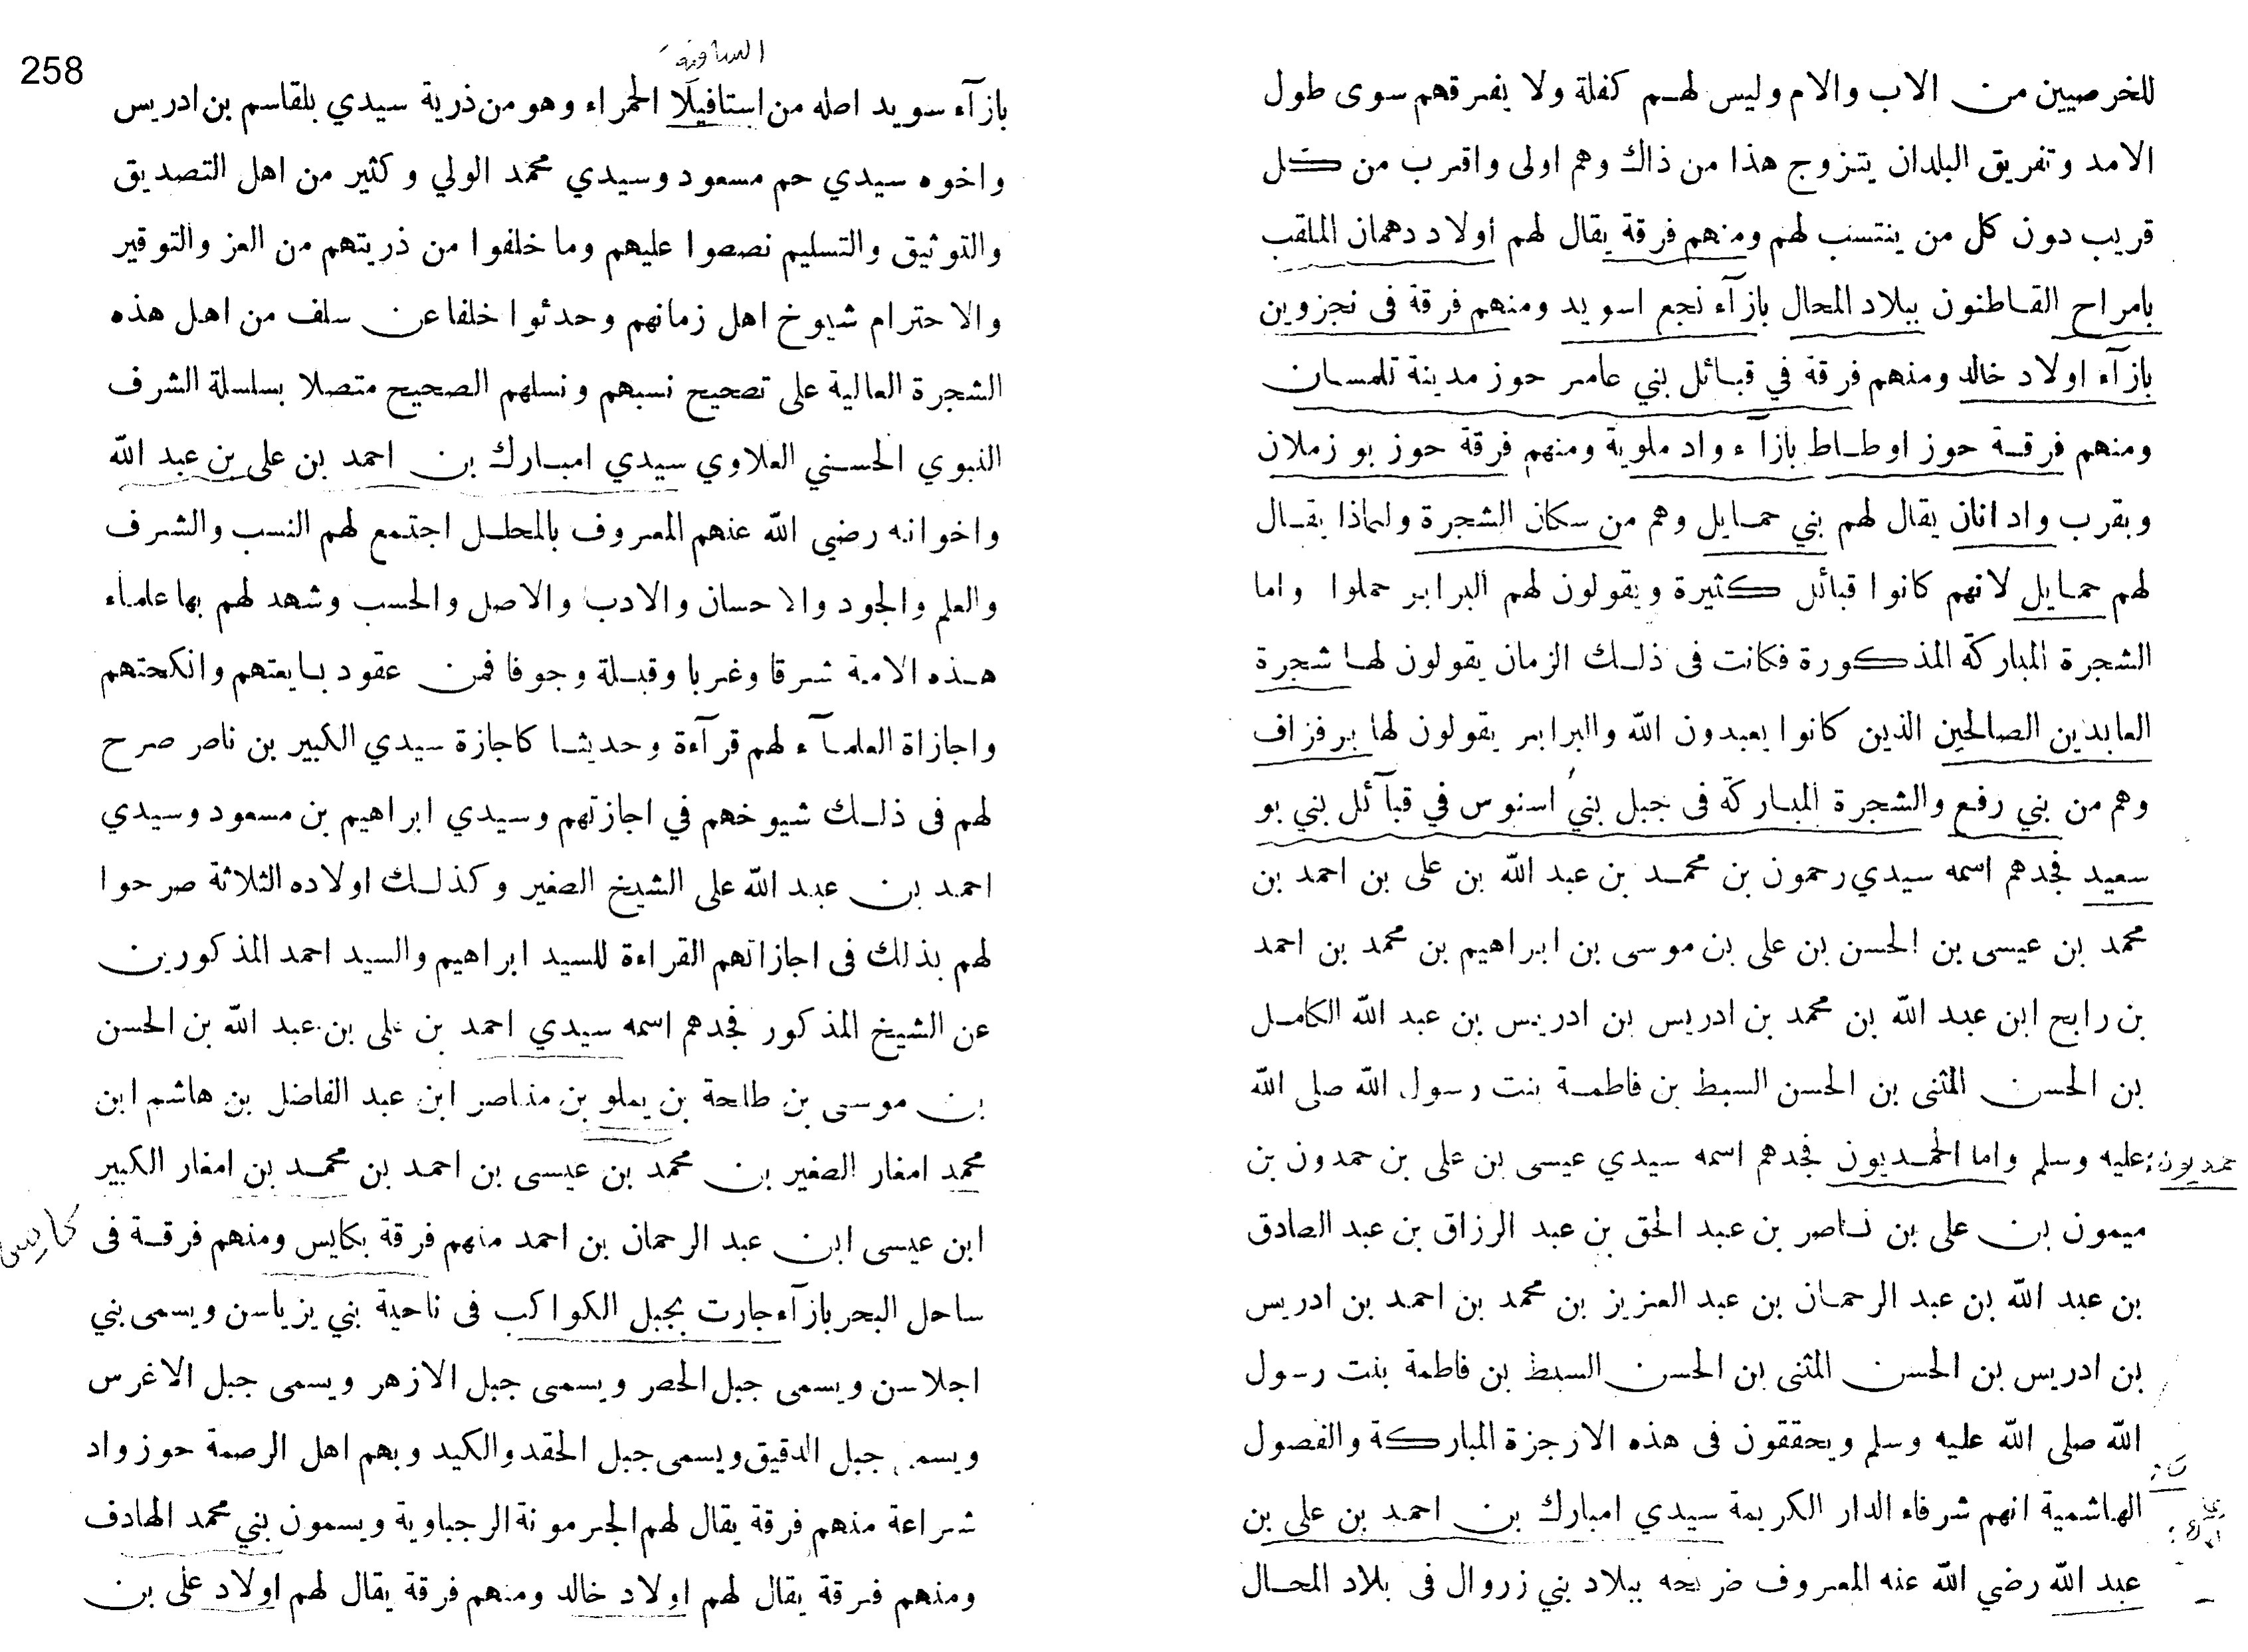 للخرصيين من الاب والام وليس لهم كفلة ولا يفرقهم سوى طول
الامد وتفريق البلدان يتزوج هذا من ذاك وهم اولى واقرب من كل
قريب دون كل من ينتسب لهم ومنهم فرقة يقال لهم أولاد دهمان الملقب
بامراح القاطنون ببلاد المحال بازآء نجع اسويد ومنهم فرقة فى نجزوين
بازآء اولاد خالد ومنهم فرقة في قبائل بني عامر حوز مدينة تلمسان
ومنهم فرقة حوز اوطاط بازآء واد ملوية ومنهم فرقة حوز بو زملان
وبقرب واد انان يقال لهم بني حمايل وهم من سكان الشجرة ولماذا يقال
لهم حمايل لانهم كانوا قبائل كثيرة ويقولون لهم البرابر حملوا واما
الشجرة المباركة المذكورة فكانت فى ذلك الزمان يقولون لها شجرة
العابدين الصالحين الذين كانوا يعبدون الله والبرابر يقولون لها برفزاف
وهم من بني رفع والشجرة المباركة فى جبل بني اسنوس في قبآئل بني بو
سعيد فجدهم اسمه سيدي رحمون بن محمد بن عبد الله بن على بن احمد بن
محمد بن عيسى بن الحسن بن على بن موسى بن ابراهيم بن محمد بن احمد
بن رابح ابن عبد الله بن محمد بن ادريس بن ادريس بن عبد الله الكامل
بن الحسن المثنى بن الحسن السبط بن فاطمة بنت رسول الله صلى الله
عليه وسلم واما الحمديون فجدهم اسمه سيدي عيسى بن على بن حمدون بن
حمديون
ميمون بن على بن ناصر بن عبد الحق بن عبد الرزاق بن عبد الصادق
بن عبد الله بن عبد الرحمان بن عبد العزيز بن محمد بن احمد بن ادريس
بن ادريس بن الحسن المثنى بن الحسن السبط بن فاطمة بنت رسول
الله صلى الله عليه وسلم ويحققون فى هذه الارجزة المباركة والفصول
الهاشمية انهم شرفاء الدار الكريمة سيدي امبارك بن احمد بن على بن
عبد الله رضي الله عنه المعروف ضريحه ببلاد بني زروال فى بلاد المحال
258
بازآء سويد اصله من استافيلا الحمراء وهو من ذرية سيدي بلقاسم بن ادريس
واخوه سيدي حم مسعود وسيدي محمد الولي وكثير من اهل التصديق
والتوثيق والتسليم نصصوا عليهم وما خلفوا من ذريتهم من العز والتوقير
والاحترام شيوخ اهل زمانهم وحدثوا خلفا عن سلف من اهل هذه
الشجرة العالية على تصحيح نسبهم ونسلهم الصحيح متصلا بسلسلة الشرف
النبوي الحسني العلاوي سيدي امبارك بن احمد بن على بن عبد الله
واخوانه رضي الله عنهم المعروف بالمحلل اجتمع لهم النسب والشرف
والعلم والجود والاحسان والادب والاصل والحسب وشهد لهم بها علماء
هذه الامة شرقا وغربا وقبلة وجوفا فمن عقود بايعتهم وانكحتهم
واجازاة العلمآء لهم قرآءة وحديثا كاجازة سيدي الكبير بن ناصر صرح
لهم فى ذلك شيوخهم في اجازتهم وسيدي ابراهيم بن مسعود وسيدي
احمد بن عبد الله على الشيخ الصغير وكذلك اولاده الثلاثة صرحوا
لهم بذلك فى اجازاتهم القراءة للسيد ابراهيم والسيد احمد المذكورين
عن الشيخ المذكور فجدهم اسمه سيدي احمد بن على بن عبد الله بن الحسن
بن موسى بن طلحة بن يعلو بن مناصر ابن عبد الفاضل بن هاشم ابن
محمد امغار الصغير بن محمد بن عيسى بن احمد بن محمد بن امغار الكبير
ابن عيسى ابن عبد الرحمان بن احمد منهم فرقة بكايس ومنهم فرقة فى
كايس
ساحل البحر بازآء جارت بجبل الكواكب فى ناحية بني يزياسن ويسمى بني
اجلاسن ويسمى جبل الحصر ويسمى جبل الازهر ويسمى جبل الاغرس
ويسمى جبل الدقيق ويسمى جبل الحقد والكيد وبهم اهل الرصمة حوز واد
شراعة منهم فرقة يقال لهم الجرمونة الرجباوية ويسمون بني محمد الهادف
ومنهم فرقة يقال لهم اولاد خالد ومنهم فرقة يقال لهم اولاد على بن